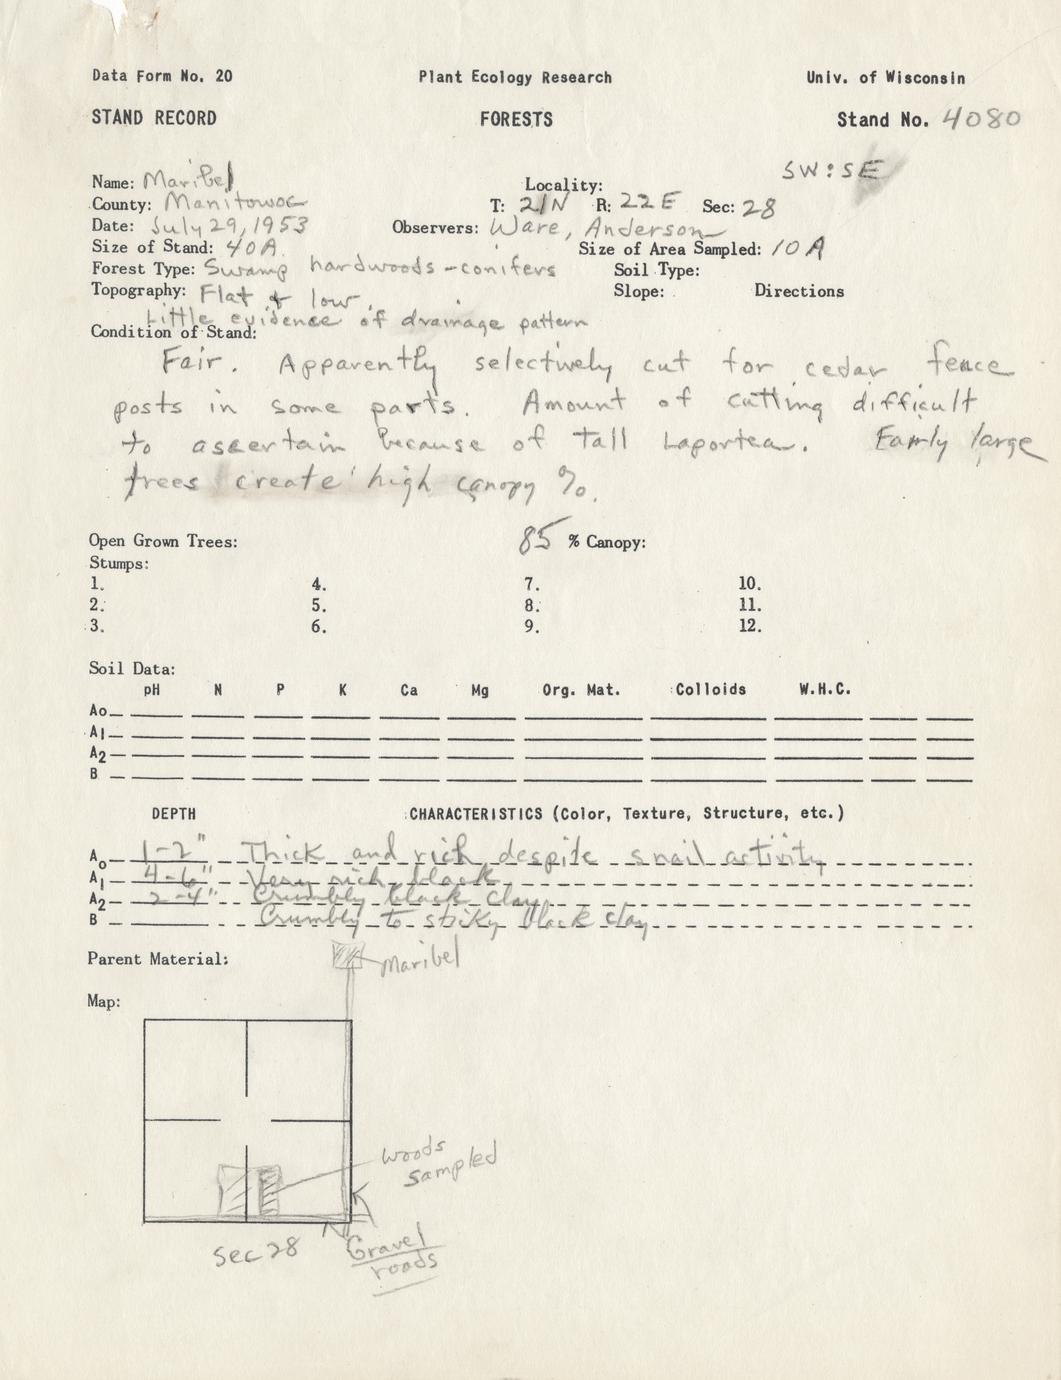 Data Form No. 20 Plant Ecology Research Univ. of Wisconsin
STAND RECORD FORESTS Stand No. 4080
SW:SE
Name: Maribel Locality:
County: Manitowoc T: 21N R: 22E Sec: 28
Date: July 29, 1953 Observers: Ware, Anderson
Size of Stand: 40A. Size of Area Sampled: 10A
Forest Type: Swamp hardwoods-conifers Soil Type:
Topography: Flat & low. Slope: Directions
Little evidence of drainage pattern
Condition of Stand:
Fair. Apparently selectively cut for cedar fence
posts in some parts. Amount of cutting difficult
to ascertain because of tall Laportea. Fairly large
trees create high canopy %.
Open Grown Trees: 85 % Canopy:
Stumps:
1. 4. 7. 10.
2. 5. 8. 11.
3. 6. 9. 12.
Soil Data:
pH N P K Ca Mg Org. Mat. Colloids W.H.C.
Ao
A1
A2
B
DEPTH CHARACTERISTICS (Color, Texture, Structure, etc.)
Ao 1-2" Thick and rich despite snail activity
A1 4-6" Very rich black
A2 2-4" Crumbly black clay
B Crumbly to sticky black clay
Parent Material: Maribel
Map:
woods
sampled
Sec 28 Gravel
roads